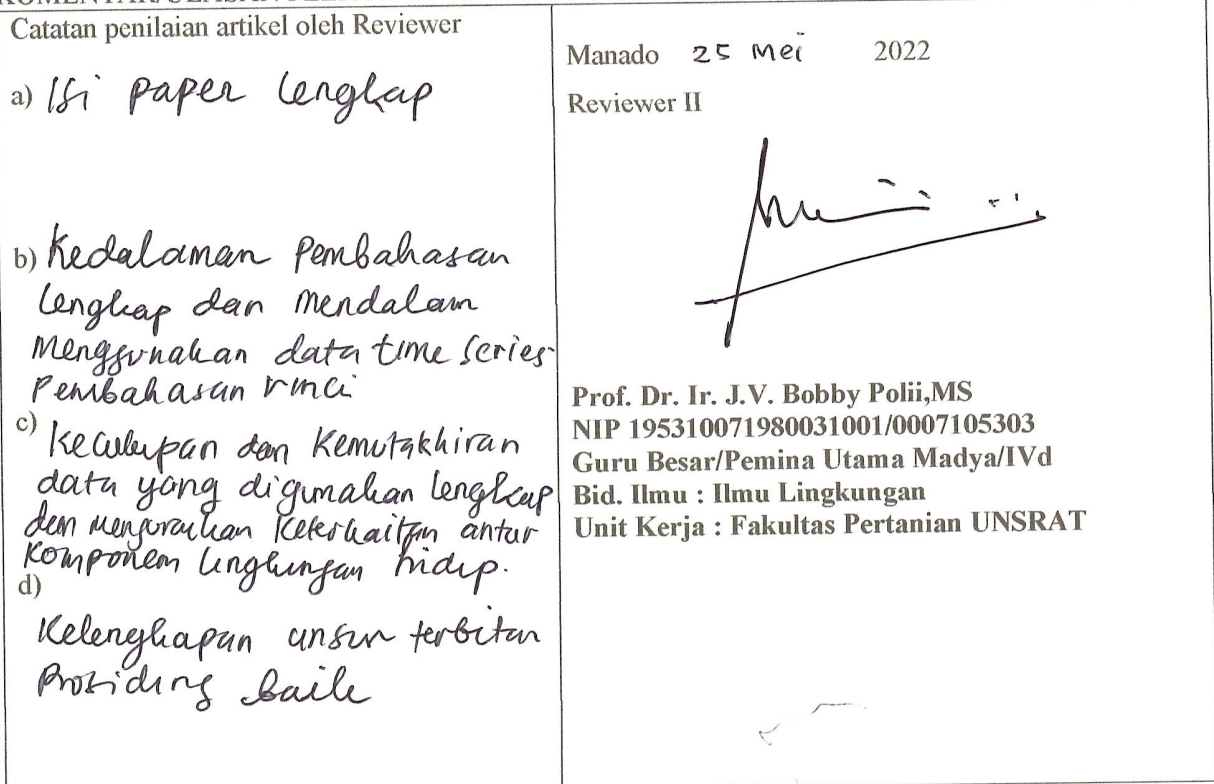 Catatan penilaian artikel oleh Reviewer
a) Isi paper lengkap
b) Kedalaman pembahasan
lengkap dan mendalam
menggunakan data time series
Pembahasan rinci
c) Kecukupan dan Kemutakhiran
data yang digunakan lengkap
dan menguraikan keterkaitan antar
komponen lingkungan hidup.
d)
Kelengkapan unsur terbitan
Prosiding baik
Manado 25 Mei 2022
Reviewer II
Prof. Dr. Ir. J.V. Bobby Polii,MS
NIP 195310071980031001/0007105303
Guru Besar/Pemina Utama Madya/IVd
Bid. Ilmu : Ilmu Lingkungan
Unit Kerja : Fakultas Pertanian UNSRAT